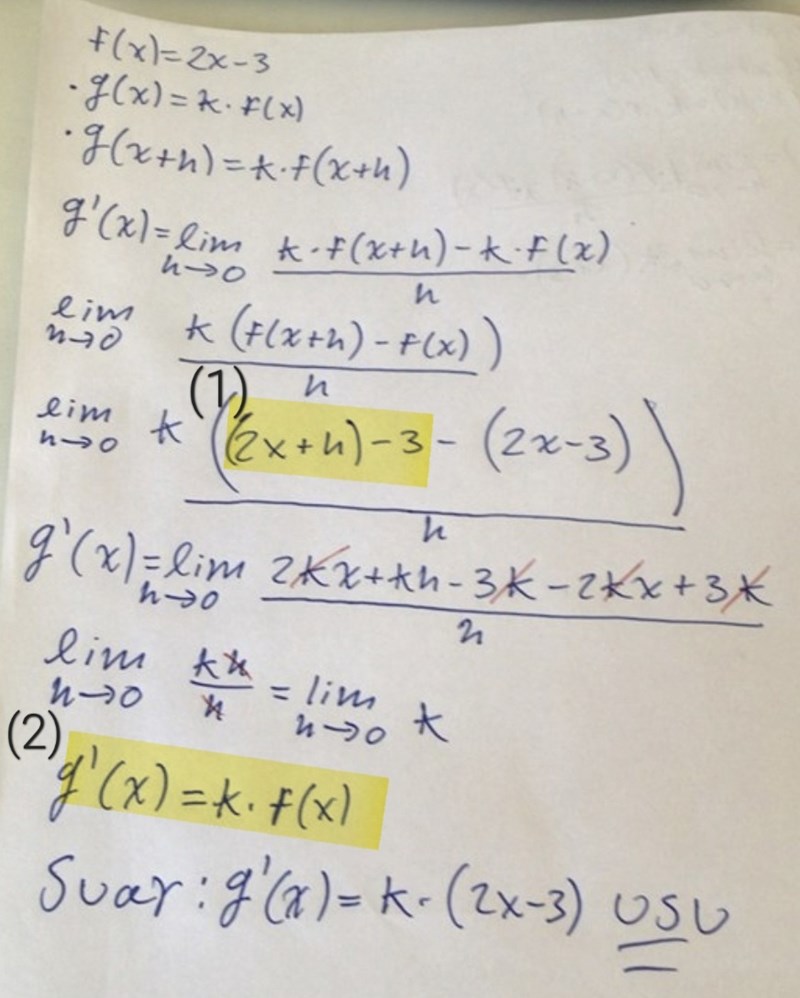 f(x)=2x-3
· g(x)=k·f(x)
· g(x+h)=k·f(x+h)
g'(x)=lim h→0 k·f(x+h)-k·f(x) / h
lim h→0 k(f(x+h)-f(x)) / h
(1)
lim h→0 k((2x+h)-3-(2x-3)) / h
g'(x)=lim h→0 2kx+kh-3k-2kx+3k / h
lim h→0 kh/h = lim h→0 k
(2)
g'(x)=k·f(x)
Svar: g'(x)=k·(2x-3) VSV